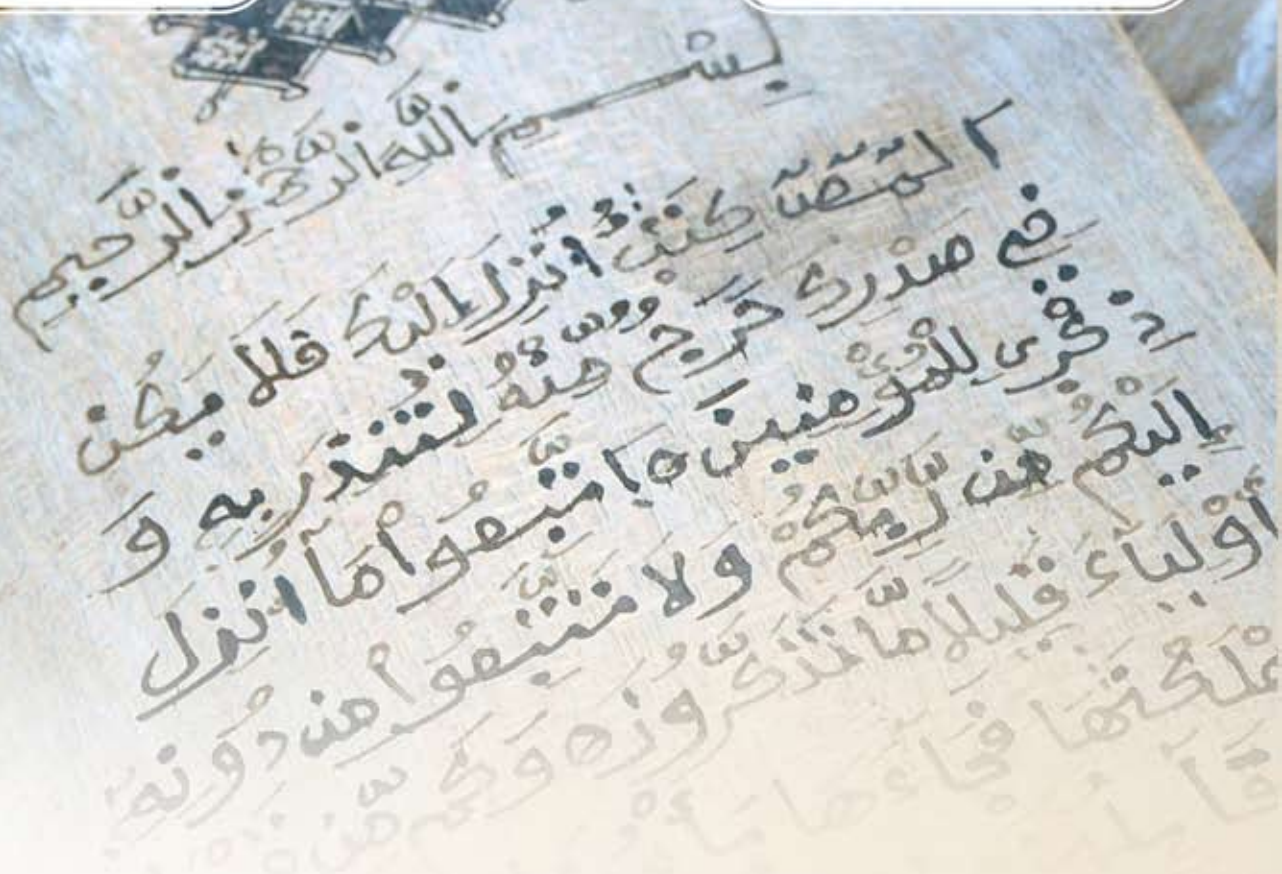 بِسْمِ اللَّهِ الرَّحْمَنِ الرَّحِيمِ
الٓمٓصٓ كِتَبٌ أُنْزِلَ إِلَيْكَ فَلَا يَكُنْ
فِي صَدْرِكَ حَرَجٌ مِّنْهُ لِتُنْذِرَ بِهِ وَ
ذِكْرَى لِلْمُؤْمِنِينَ ه اتَّبِعُوا مَآ أُنْزِلَ
إِلَيْكُمْ مِّن رَّبِّكُمْ وَلَا تَتَّبِعُوا مِن دُونِهِ
أَوْلِيَآءَ قَلِيلًا مَّا تَذَكَّرُونَ ه وَكَم مِّن
أَهْلَكْنَهَا فَجَاءَهَا